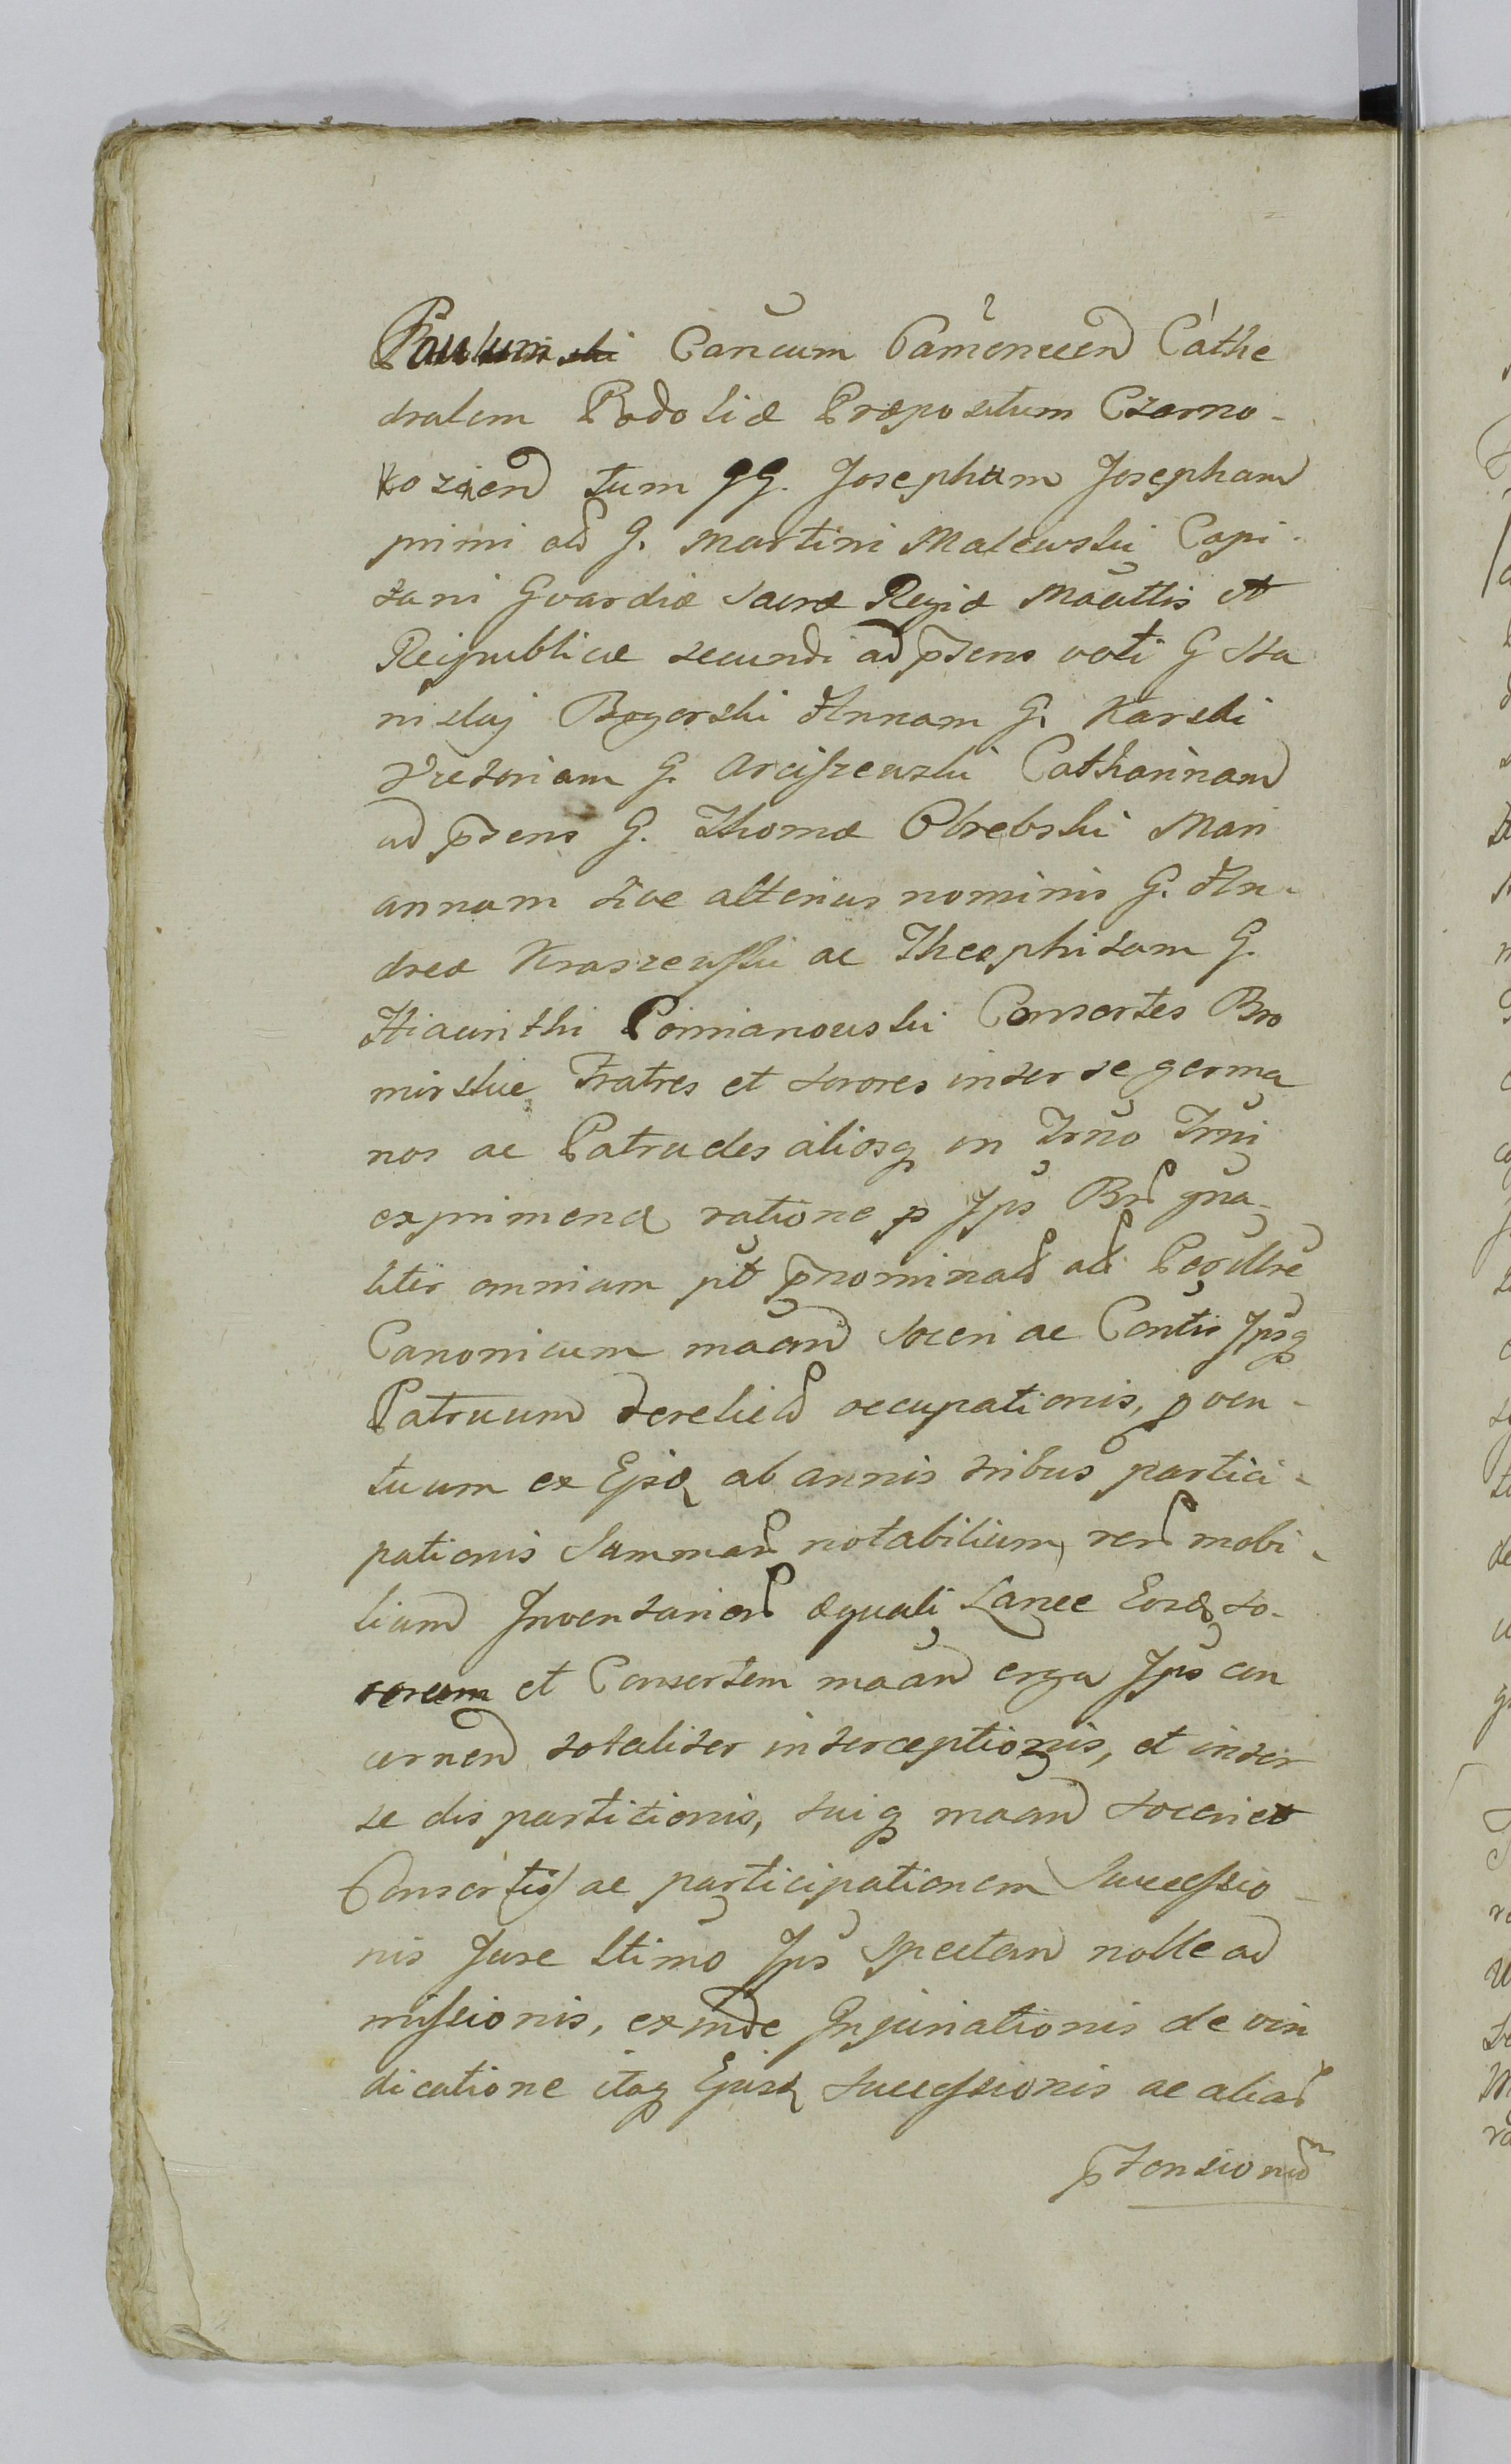 Paulum Canĉum Camenecen Cathe
dralem Podoliæ Præpositum Czarno-
kozien tum GG. Josephum Josepham
primi olim G. Martini Malewski Capi-
tani Gvardiæ Sacræ Regiæ Mattis et
Reipublicæ secundi ad pñsens voti G Sta
nislaj Bogorski Annam G. Karski
Victoriam G. Arciszewski Catharinam
ad pñsens G. Thomæ Obrebski Mari
annam sive alterius nominis G. An-
dreæ Kraszewski ac Theophilam G.
Hiacinthi Pomianowski Consortes Bro
mirskie Fratres et Sorores inter se germa
nos ac Patrueles aliosq in Trno Trni
exprimend ratione p Jps Br gna-
liter omnium pt pnominal olim
Canonicum maand Soceri ac Contis Jpsq
Patruum derelict occupationis, proven-
tuum ex Ejsd ab annis tribus partici-
pationis Summar notabilium, rer mobi-
lium Inventarior æquali Lance Eosd So-
rorem et Consortem maan erga Jps con
cernen totaliter interceptionis, et inter
se dispartitionis, suiq maan Soceri et
Consortis ac participationem Successio-
nis Jure ltimo Jps spectan nolle ad
missionis, exinde Injuriationis de vin
dicatione itaq Ejusd Successionis ac aliar
ptensionum